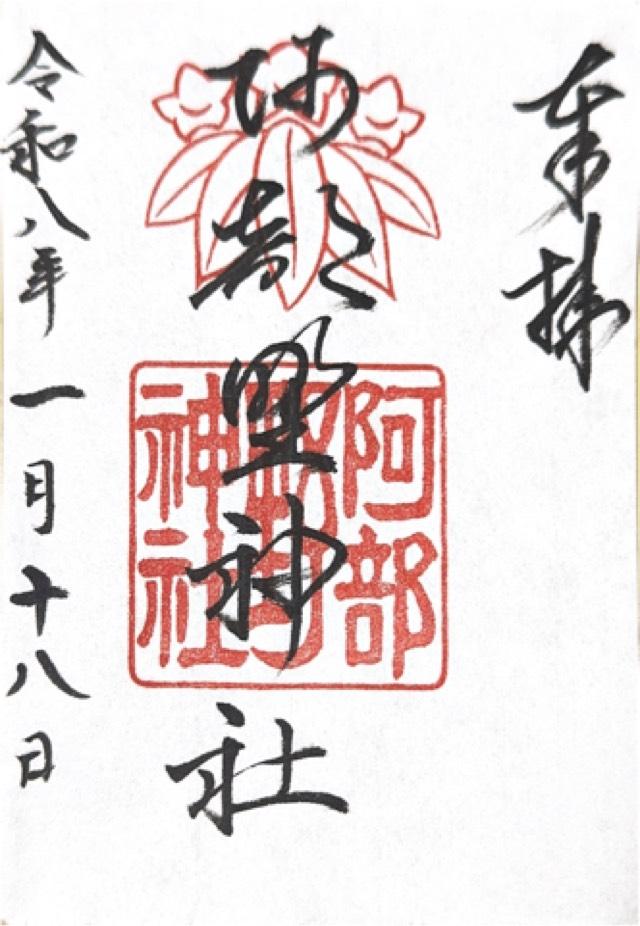 奉拝
阿部野神社
阿部
野
神社
令和八年一月十八日